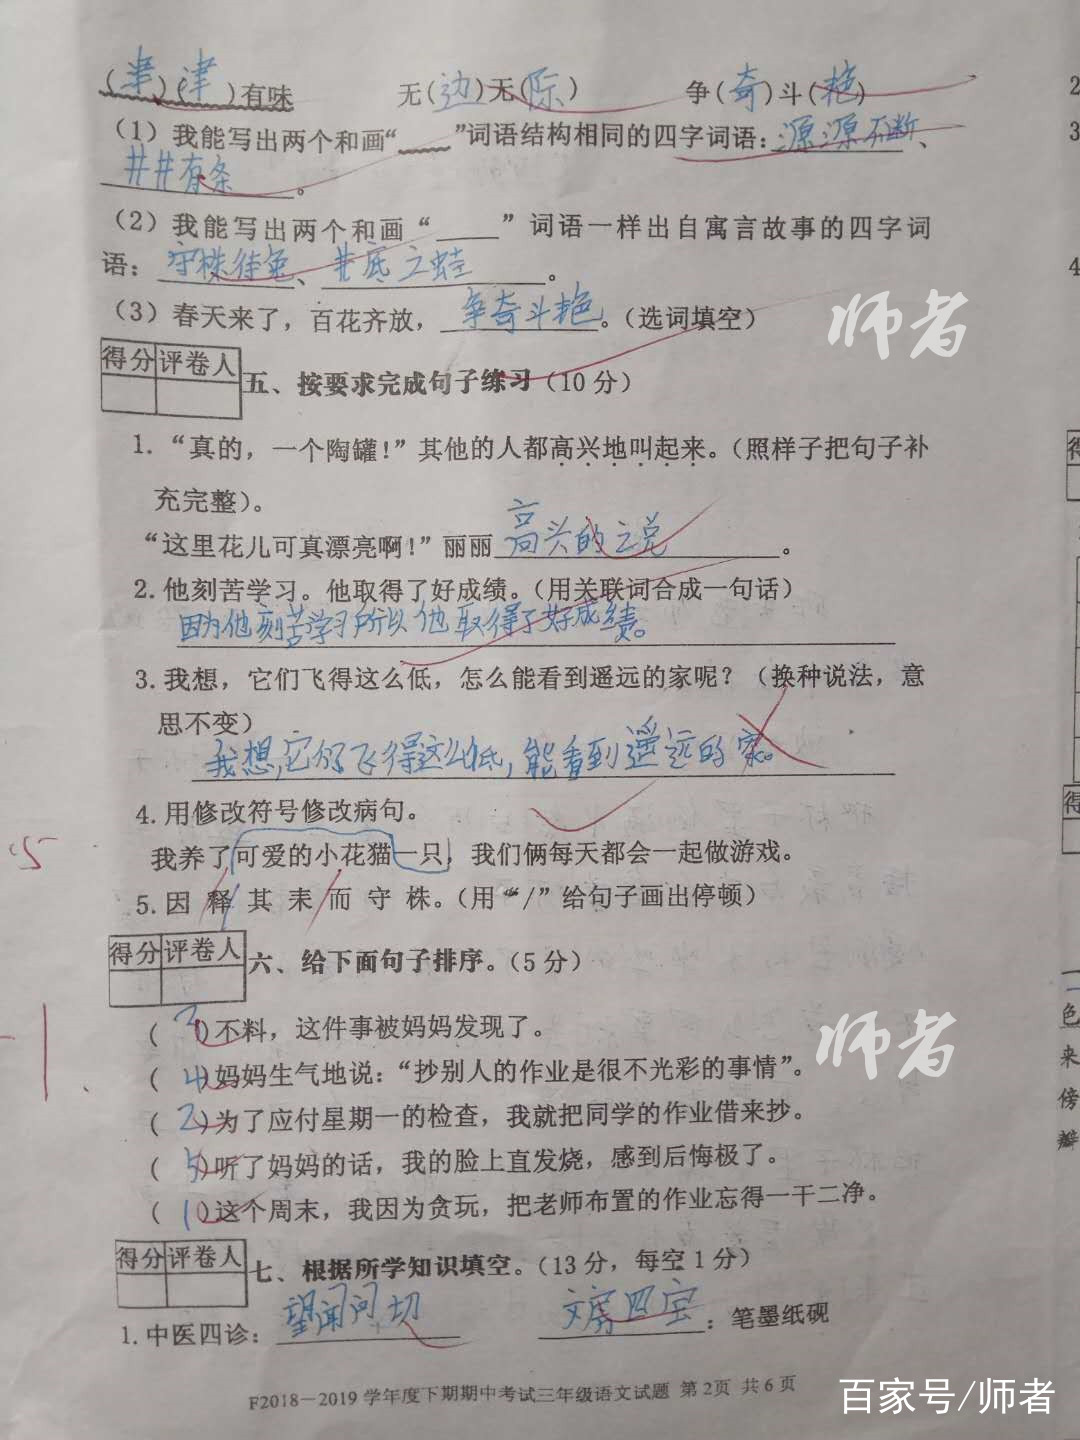 (津)(津)有味 无(边)无(际) 争(奇)斗(艳)
(1)我能写出两个和画“ ”词语结构相同的四字词语:源源不断、
井井有条。
(2)我能写出两个和画“ ”词语一样出自寓言故事的四字词
语:守株待兔、井底之蛙。
(3)春天来了,百花齐放,争奇斗艳。(选词填空)
得分 评卷人
五、按要求完成句子练习(10分)
1.“真的,一个陶罐!”其他的人都高兴地叫起来。(照样子把句子补
充完整)。
“这里花儿可真漂亮啊!”丽丽高兴的说。
2.他刻苦学习。他取得了好成绩。(用关联词合成一句话)
因为他刻苦学习所以他取得了好成绩。
3.我想,它们飞得这么低,怎么能看到遥远的家呢?(换种说法,意
思不变)
我想,它们飞得这么低,能看到遥远的家。
4.用修改符号修改病句。
我养了可爱的小花猫一只,我们俩每天都会一起做游戏。
5.因 释 其 耒 而 守 株。(用“/”给句子画出停顿)
得分 评卷人
六、给下面句子排序。(5分)
(3)不料,这件事被妈妈发现了。
(4)妈妈生气地说:“抄别人的作业是很不光彩的事情”。
(2)为了应付星期一的检查,我就把同学的作业借来抄。
(5)听了妈妈的话,我的脸上直发烧,感到后悔极了。
(1)这个周末,我因为贪玩,把老师布置的作业忘得一干二净。
得分 评卷人
七、根据所学知识填空。(13分,每空1分)
1.中医四诊:望闻问切 文房四宝:笔墨纸砚
F2018-2019学年度下期期中考试三年级语文试题 第2页 共6页
师者
师者
百家号/师者
2
3
4
得
得
色
来
傍
瓣
-1